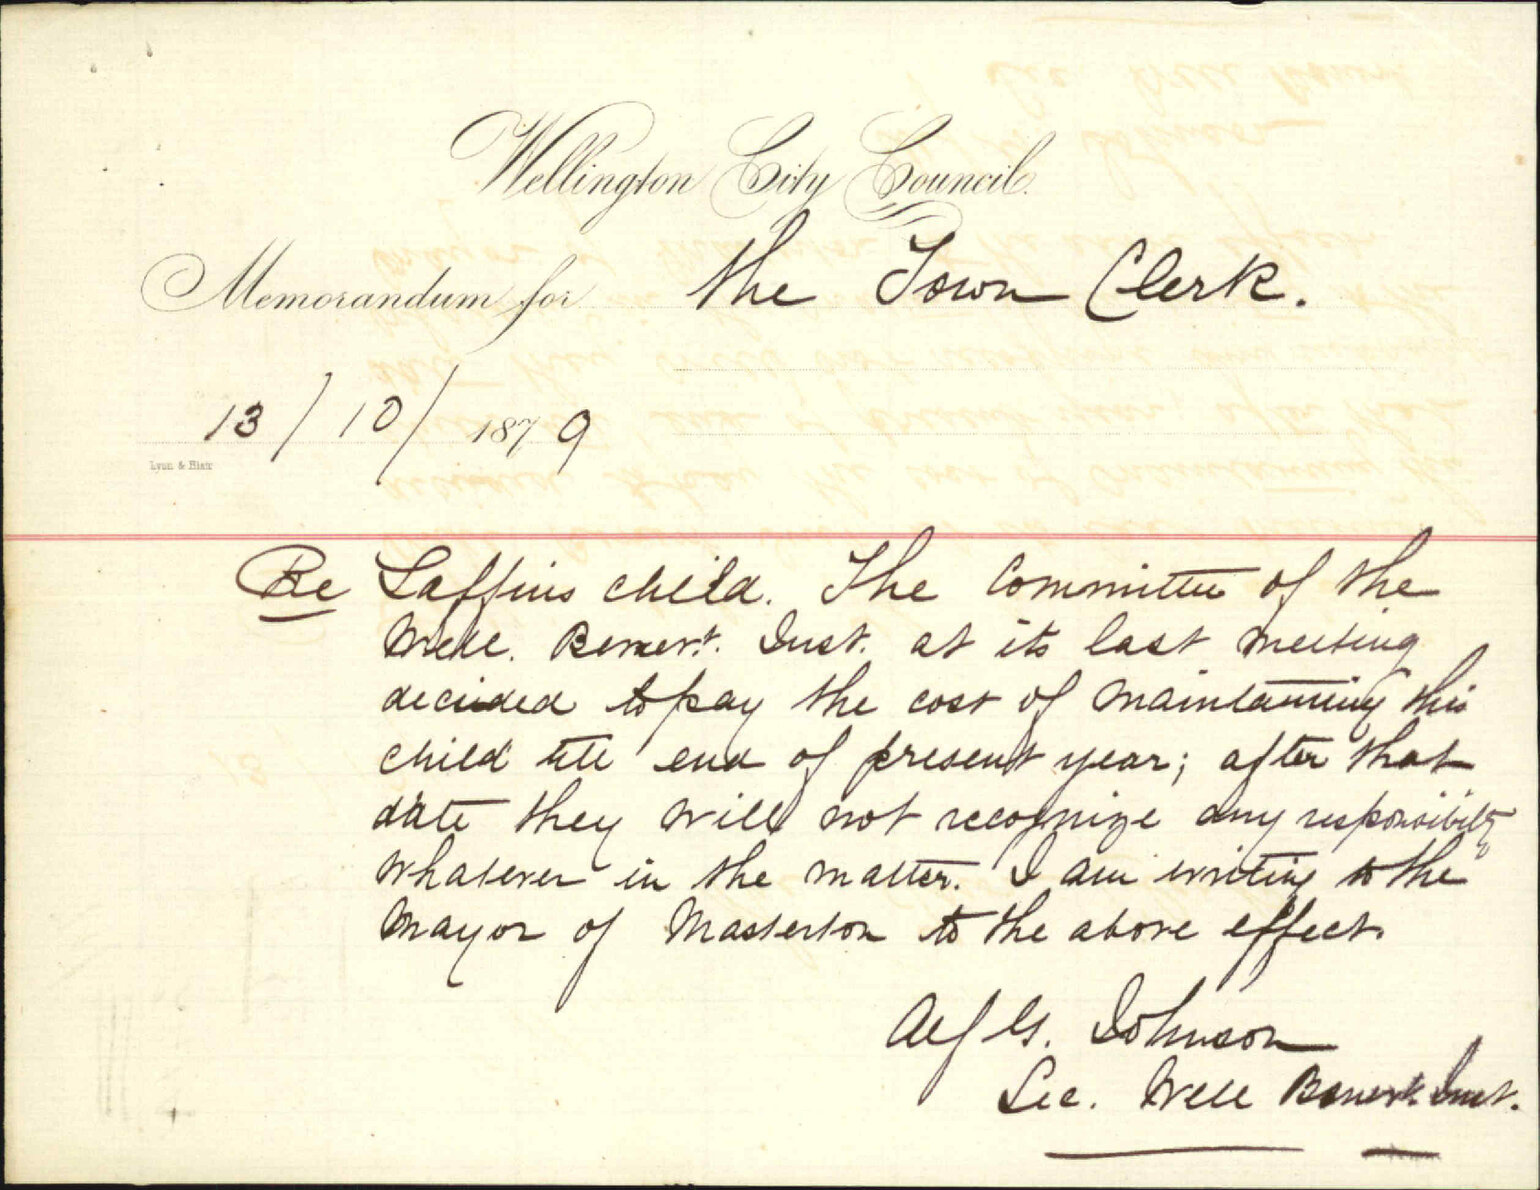 Wellington City Council.
Memorandum for the Town Clerk.
13/10/1879
Lyon & Blair
Re Laffins child. The Committee of the
Well. Benevt. Inst. at its last meeting
decided to pay the cost of maintaining this
child till end of present year; after that
date they will not recognize any responsibility
whatever in the matter. I am writing to the
Mayor of Masterton to the above effect.
Alf G. Johnson
Sec. Well Benevt. Inst.